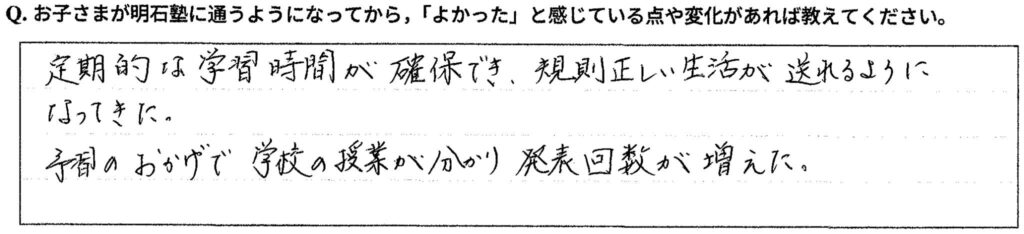 Q. お子さまが明石塾に通うようになってから，「よかった」と感じている点や変化があれば教えてください。
定期的な学習時間が確保でき、規則正しい生活が送れるように
なってきた。
予習のおかげで学校の授業が分かり発表回数が増えた。